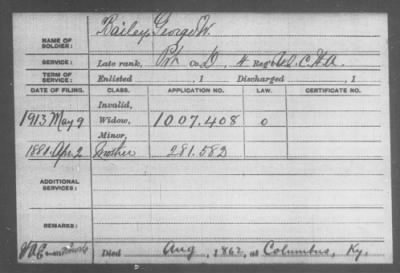 NAME OF SOLDIER: Bailey, George W.
SERVICE: Late rank, Pvt Co. D, 4 Reg't U.S.C.H.A.
TERM OF SERVICE: Enlisted , 1 Discharged , 1
DATE OF FILING. CLASS. APPLICATION NO. LAW. CERTIFICATE NO.
Invalid,
1913 May 9 Widow, 1007.408 0
Minor,
1881 Apr. 2 Mother 281.582
ADDITIONAL SERVICES:
REMARKS:
Died Aug , 1862, at Columbus, Ky.